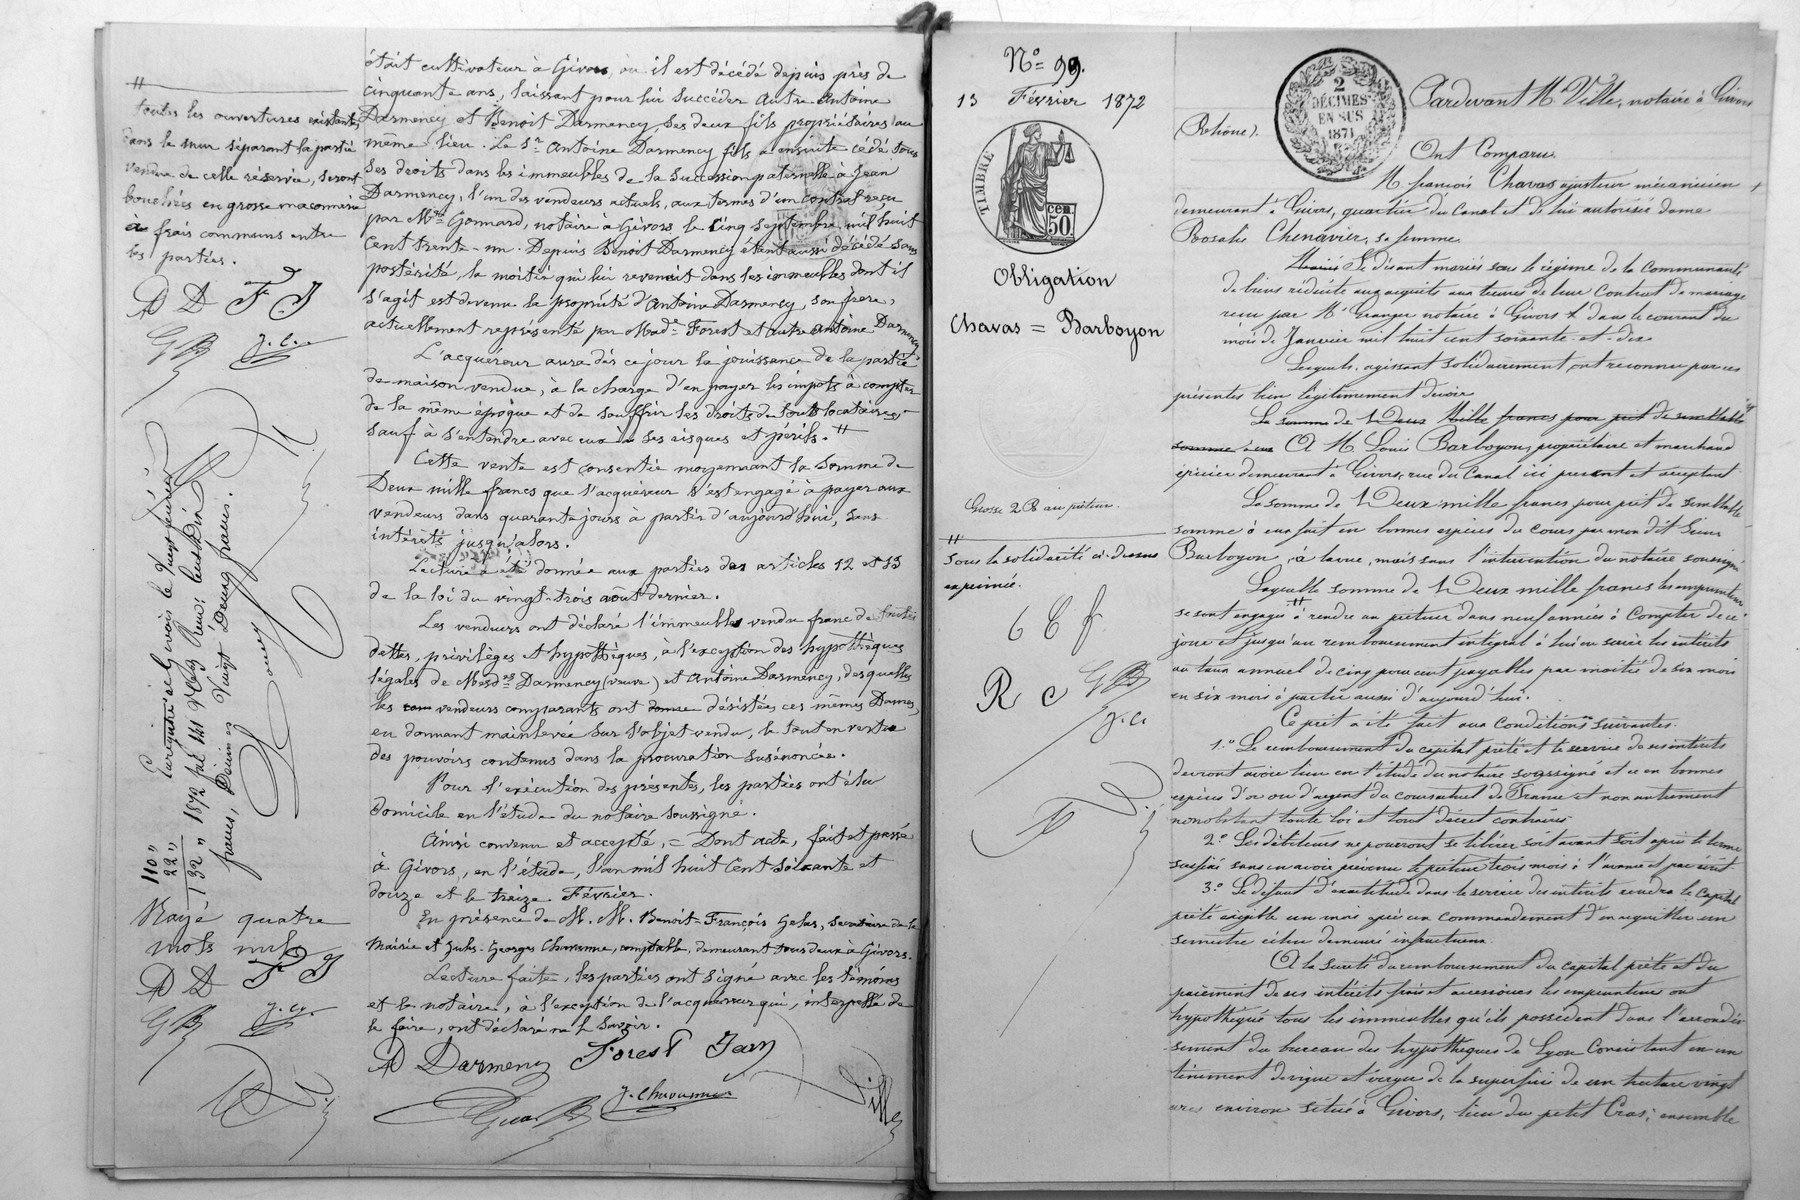 était cultivateur à Givors, où il est décédé depuis près de
cinquante ans, laissant pour lui succéder autre Antoine
Darmency et Benoit Darmency, ses deux fils propriétaires au
même lieu. Le Sr Antoine Darmency fils a ensuite cédé tous
ses droits dans les immeubles de la succession paternelle à Jean
Darmency, l'un des vendeurs actuels, aux termes d'un contrat reçu
par Me Gonnard, notaire à Givors le cinq Septembre mil huit
cent trente-un. Depuis Benoit Darmency étant aussi décédé sans
postérité, la moitié qui lui revenait dans les immeubles dont il
s'agit est devenue la propriété d'Antoine Darmency, son frère,
actuellement représenté par Made Forest et autre Antoine Darmency.
L'acquéreur aura dès ce jour la jouissance de la partie
de maison vendue, à la charge d'en payer les impôts à compter
de la même époque et de souffrir les droits de tous locataires,
sauf à s'entendre avec eux à ses risques et périls. #
Cette vente est consentie moyennant la somme de
Deux mille francs que l'acquéreur s'est engagé à payer aux
vendeurs dans quarante jours à partir d'aujourd'hui, sans
intérêts jusqu'alors.
Lecture a été donnée aux parties des articles 12 et 13
de la loi du vingt-trois août dernier.
Les vendeurs ont déclaré l'immeuble vendu franc de toutes
dettes, privilèges et hypothèques, à l'exception des hypothèques
légales de Mesdes Darmency (veuve) et Antoine Darmency, desquelles
les vendeurs comparants ont désistées ces mêmes Dames,
en donnant mainlevée sur l'objet vendu, le tout en vertu
des pouvoirs contenus dans la procuration susénoncée.
Pour l'exécution des présentes, les parties ont élu
domicile en l'étude du notaire soussigné.
Ainsi convenu et accepté, = Dont acte, fait et passé
à Givors, en l'étude, l'an mil huit cent soixante et
douze et le treize Février.
En présence de M. M. Benoit François Gelas, secrétaire de la
Mairie et Jules-Georges Chavanne, comptable, demeurant tous deux à Givors.
Lecture faite, les parties ont signé avec les témoins
et le notaire, à l'exception de l'acquéreur qui, interpellé de
le faire, ont déclaré ne le savoir.
AD Darmency Forest
J. Chavanne
Ville
#
toutes les ouvertures existantes
dans le mur séparant la partie
vendue de celle réservée, seront
bouchées en grosse maçonnerie
à frais communs entre
les parties.
AD D F J
J. C.
110 "
22 "
132 "
Enregistré à Givors le vingt février
1872 fol 141 Reçu: cent Dix
francs, Décimes Vingt Deux francs.
Rayé quatre
mots nuls
AD D F J
No = 99.
13 Février 1872
TIMBRE
50 cen.
Obligation
Chavas = Barboyon
Grosse 2 R au prêteur.
#
sous la solidarité ci-dessus
exprimée.
R C
J. C.
2
DÉCIMES
EN SUS
1871
Pardevant Me Ville, notaire à Givors
(Rhône).
Ont Comparu
M. François Chavas ajusteur mécanicien
demeurant à Givors, quartier du Canal et de lui autorisée dame
Rosalie Chenavier, sa femme
Mariés Se disant mariés sous le régime de la Communauté
de biens réduite aux acquets aux termes de leur Contrat de mariage
reçu par Me Granger notaire à Givors dans le courant du
mois de Janvier mil huit cent soixante-et-dix
Lesquels, agissant solidairement ont reconnu par ces
présentes bien légitimement devoir
La somme de Deux Mille francs pour prêt de semblable
somme à eux A M. Louis Barboyon, propriétaire et marchand
épicier demeurant à Givors, rue du Canal ici présent et acceptant
La somme de Deux mille francs pour prêt de semblable
somme à eux fait en bonnes espèces du cours par mon dit Sieur
Barboyon, à la vue, mais sans l'intervention du notaire soussigné
Laquelle somme de Deux mille francs les emprunteurs
se sont engagés # à rendre au prêteur dans neuf années à Compter de ce
jour et jusqu'au remboursement intégral à lui en servir les intérêts
au taux annuel de cinq pour cent payables par moitié de six mois
en six mois à partir aussi d'aujourd'hui.
Ce prêt a été fait aux Conditions suivantes.
1.o Le remboursement du capital prêté et le service de ses intérêts
devront avoir lieu en l'étude du notaire soussigné et ce en bonnes
espèces d'or ou d'argent du cours actuel de France et non autrement
nonobstant toute loi et tout décret contraires
2o Les débiteurs ne pourront se libérer soit avant soit après le terme
susfixé sans en avoir prévenu le prêteur trois mois à l'avance et par écrit.
3o Le défaut d'exactitude dans le service des intérêts rendra le Capital
prêté exigible un mois après un Commandement d'en acquitter un
semestre resté demeuré infructueux.
A la sureté du remboursement du capital prêté et du
paiement de ses intérêts frais et accessoires les emprunteurs ont
hypothéqué tous les immeubles qu'ils possèdent dans l'arrondis-
sement du bureau des hypothèques de Lyon Consistant en un
tènement de vigne et verger de la superficie de un hectare vingt
ares environ situé à Givors, lieu du petit Cras; ensemble